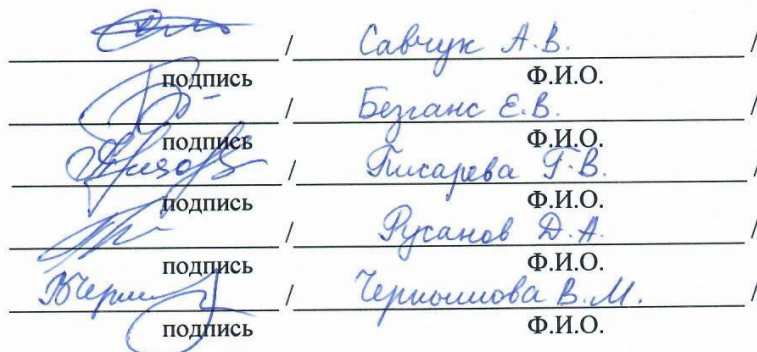 / Савчук А.В. /
подпись Ф.И.О.
/ Безганс Е.В. /
подпись Ф.И.О.
/ Писарева Г.В. /
подпись Ф.И.О.
/ Русанов Д.А. /
подпись Ф.И.О.
/ В.М. /
подпись Ф.И.О.